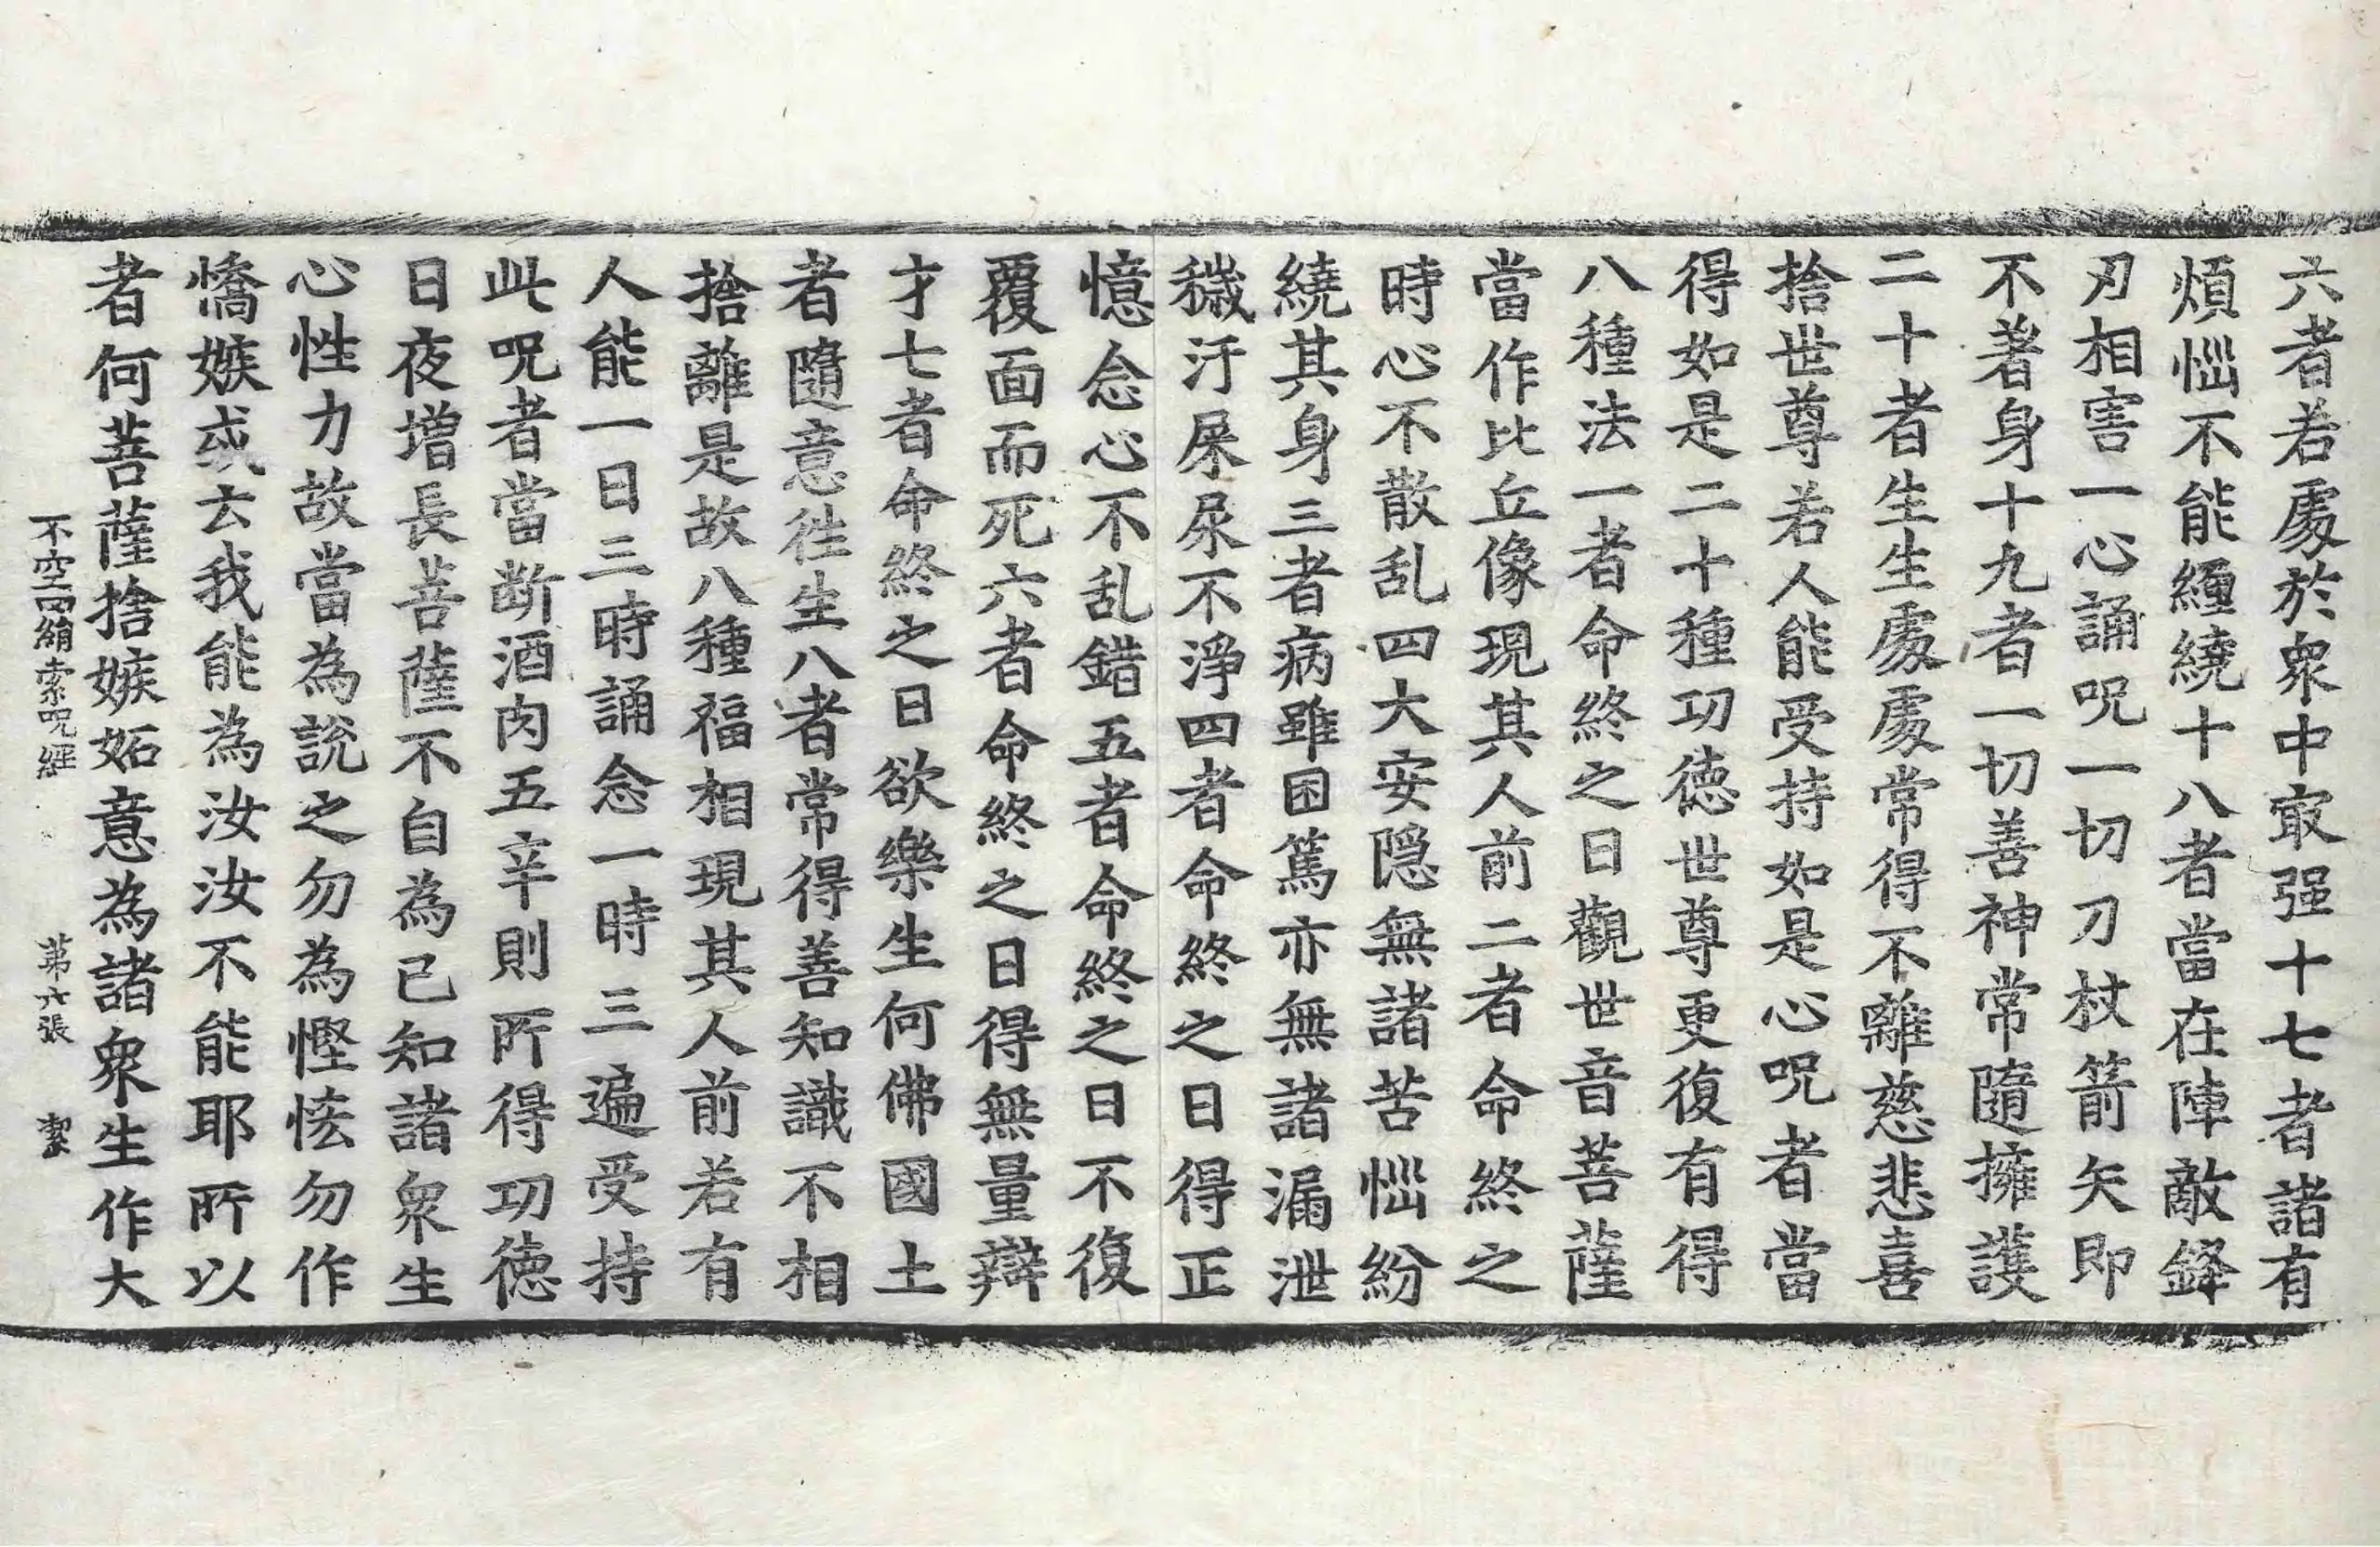 六者若處於衆中㝡强十七者諸有
煩惱不能纏繞十八者當在陣敵鋒
刃相害一心誦呪一切刀杖箭矢即
不著身十九者一切善神常隨擁護
二十者生生處處常得不離慈悲喜
捨世尊若人能受持如是心呪者當
得如是二十種功德世尊更復有得
八種法一者命終之日觀世音菩薩
當作比丘像現其人前二者命終之
時心不散乱四大安隱無諸苦惱紛
繞其身三者病雖困篤亦無諸漏泄
穢汙屎尿不淨四者命終之日得正
憶念心不乱錯五者命終之日不復
覆面而死六者命終之日得無量辯
才七者命終之日欲樂生何佛國土
者隨意徃生八者常得善知識不相
捨離是故八種福相現其人前若有
人能一日三時誦念一時三遍受持
此呪者當断酒肉五辛則所得功德
日夜增長菩薩不自為已知諸衆生
心性力故當為說之勿為慳悋勿作
憍嫉或云我能為汝汝不能耶所以
者何菩薩捨嫉妬意為諸衆生作大
不空羂索呪經 苐六張 潔